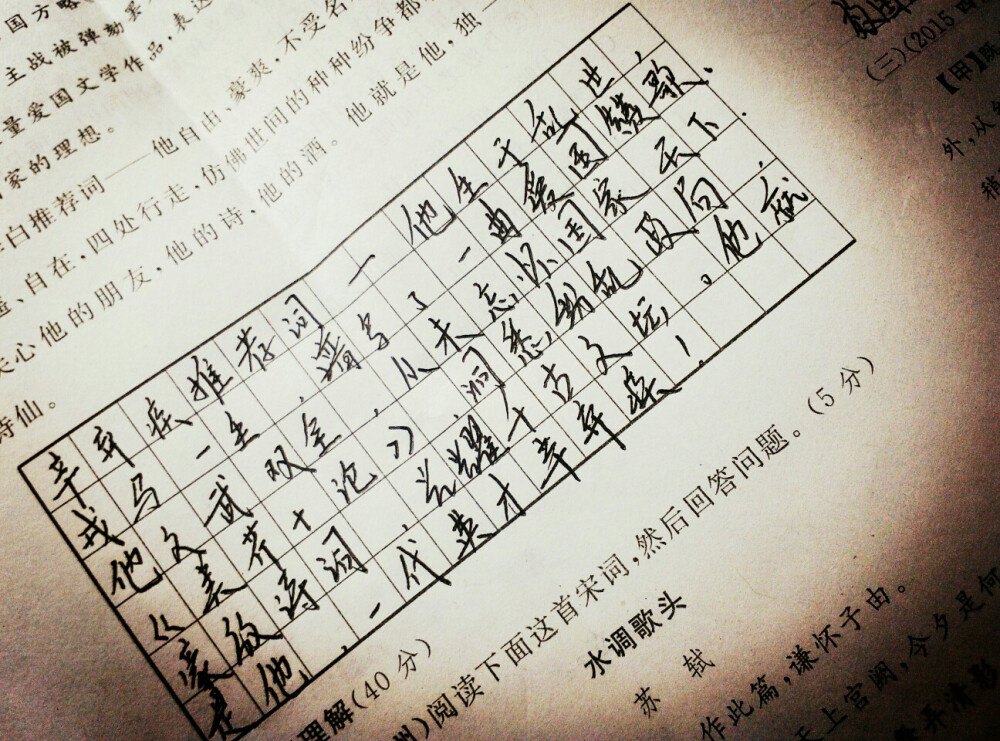 国方略
主战被弹劾罢
量爱国文学作品,表达
家的理想。
白推荐词——他自由、豪爽,不受名
遥、自在,四处行走,仿佛世间的种种纷争都
关心他的朋友,他的诗,他的酒。他就是他,独一
诗仙。
辛弃疾推荐词一他生于乱世,
戎马一生,谱写了一曲爱国歌.
他文武双全,从未忘怀国家天下.
《美芹十论》,洞悉纷乱政局,
豪放诗词,光耀千古文坛。他就
是他,一代英才辛弃疾!
理解(40分)
州)阅读下面这首宋词,然后回答问题。(5分)
水调歌头
苏 轼
作此篇,兼怀子由。
天上宫阙,今夕是何
弄清影
(三)(2015 四
【甲】
外,从